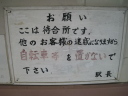 お願い
ここは待合所です。
他のお客様の迷惑になりますから
自転車等を置かないで
下さい
駅長